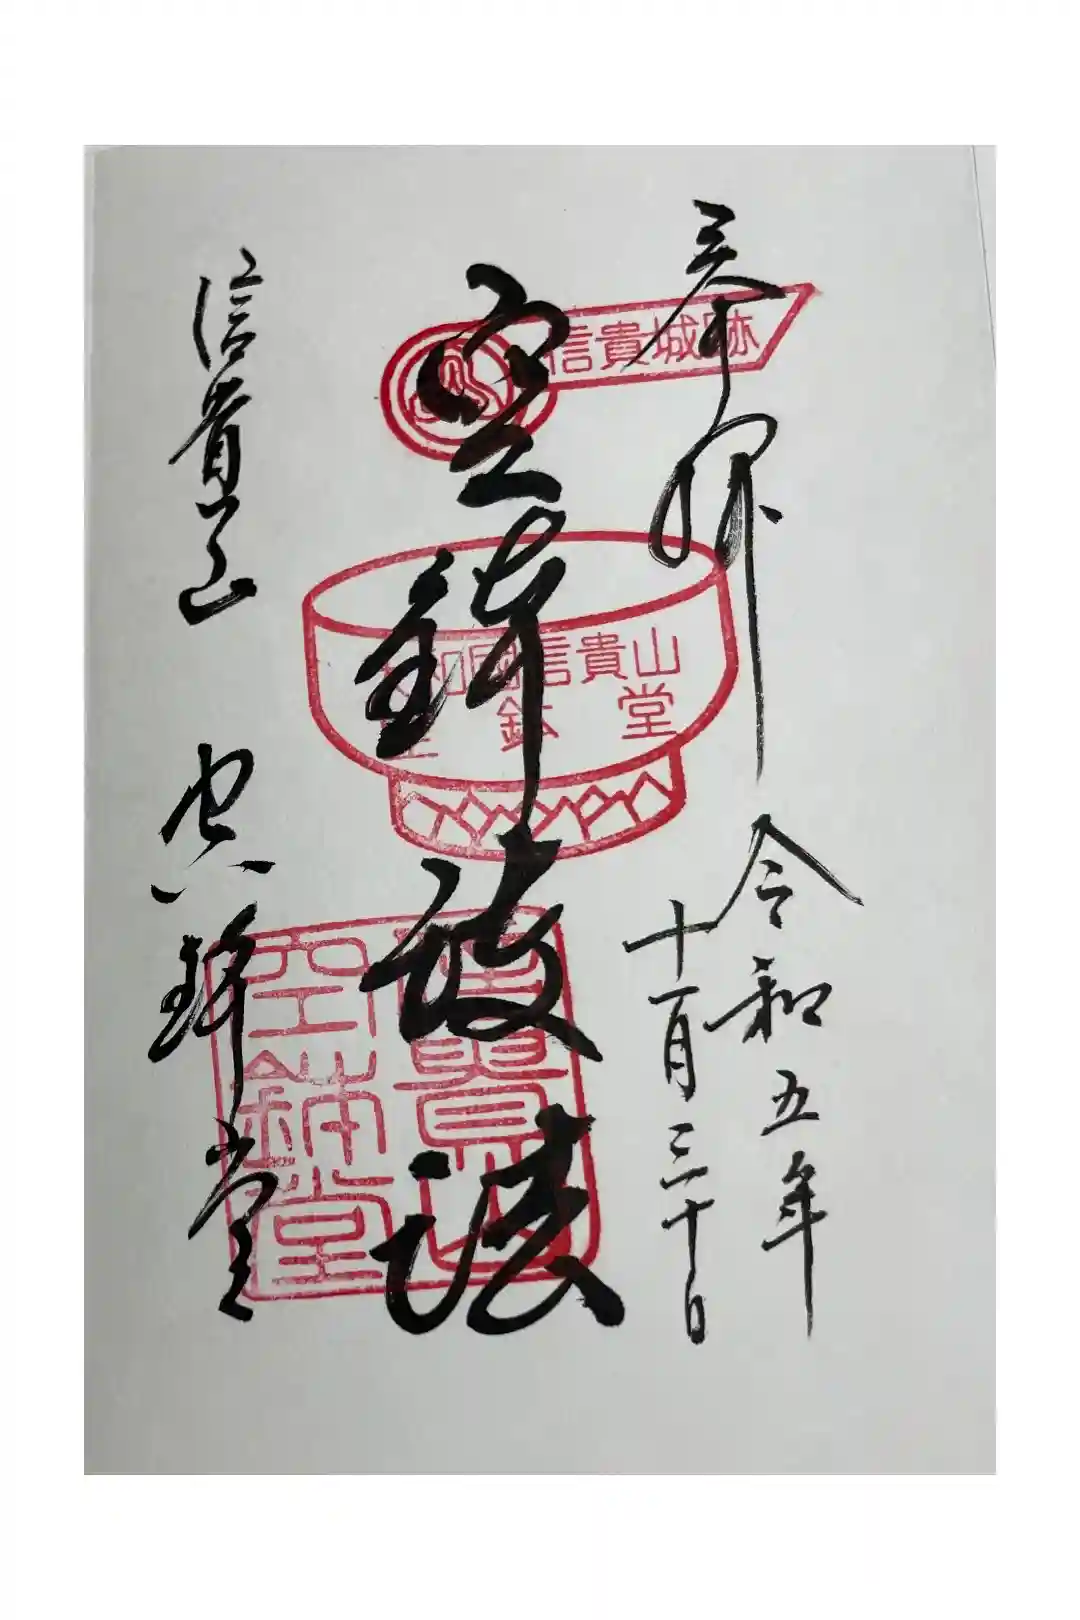 奉拝
令和五年
十一月三十日
信貴城跡
空鉢護法
大和國信貴山
空鉢堂
信貴山
空鉢堂
信貴山
空鉢堂